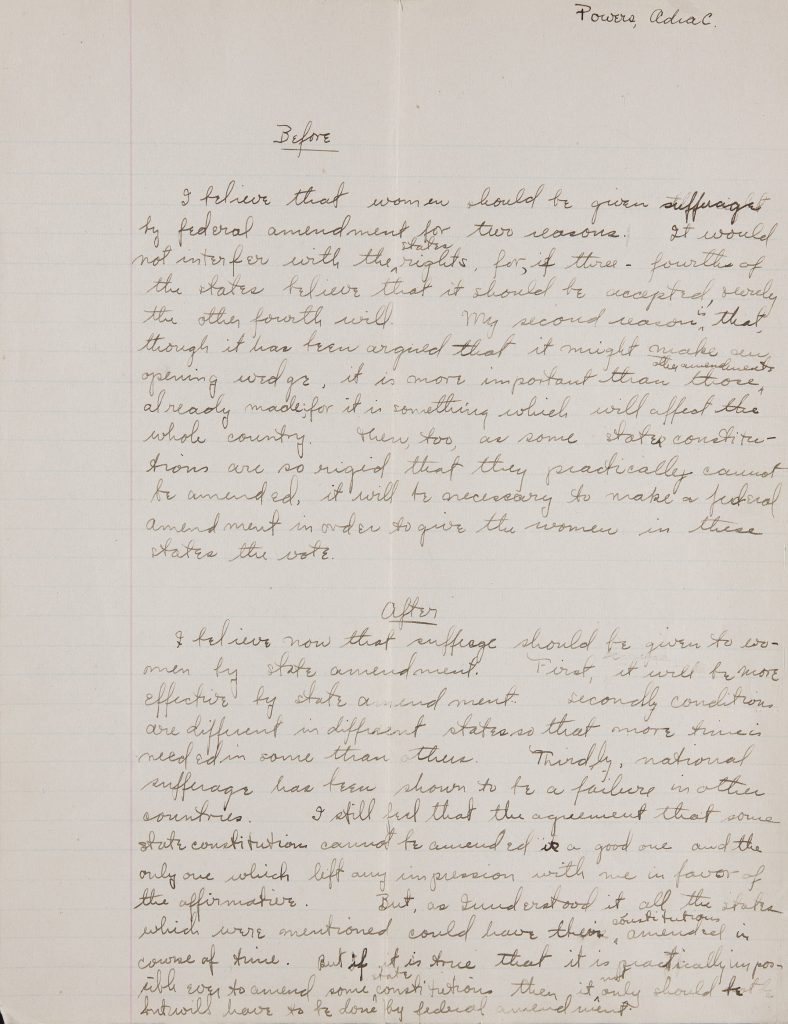 Powers, Adra C.
Before
I believe that women should be given suffrage
by federal amendment for two reasons. It would
not interfer with the states rights, for, if three-fourths of
the states believe that it should be accepted, surely
the other fourth will. My second reason is that,
though it has been argued that it might make an
opening wedge, it is more important than those amendments
already made, for it is something which will affect the
whole country. Then, too, as some states constitu-
tions are so rigid that they practically cannot
be amended, it will be necessary to make a federal
amendment in order to give the women in these
states the vote.
After
I believe now that suffrage should be given to wo-
men by state amendment. First, it will be more
effective by state amendment. Secondly conditions
are different in different states so that more time is
needed in some than others. Thirdly, national
sufferage has been shown to be a failure in other
countries. I still feel that the agreement that some
state constitution cannot be amended is a good one and the
only one which left any impression with me in favor of
the affirmative. But, as I understood it all the states
which were mentioned could have their constitutions amended in
course of time. But if it is true that it is practically impos-
sible ever to amend some state constitutions then it not only should be
but will have to be done by federal amendment.